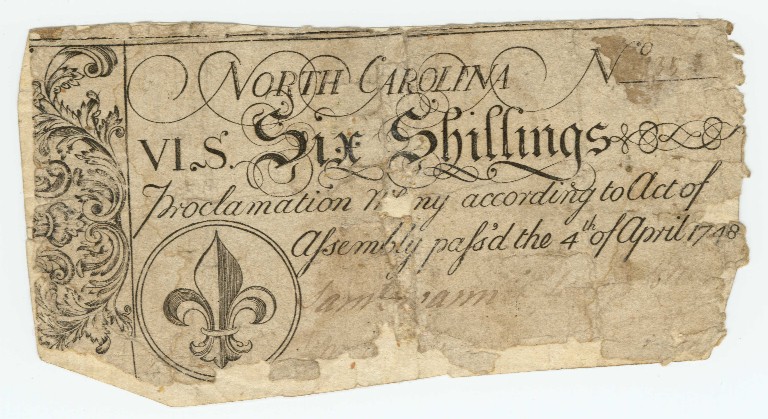 NORTH CAROLINA No
VI.S. Six Shillings
Proclamation ny according to Act of
Aſsembly paſs'd the 4th of April 1748